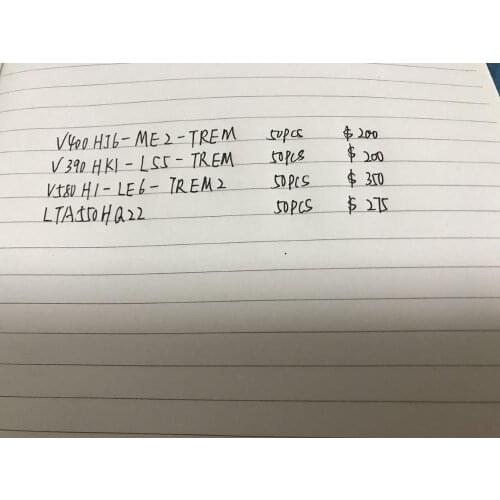 V400HJ6-ME2-TREM 50PCS $200
V390HK1-LS5-TREM 50PCS $200
V580H1-LE6-TREM2 50PCS $350
LTA550HQ22 50PCS $275